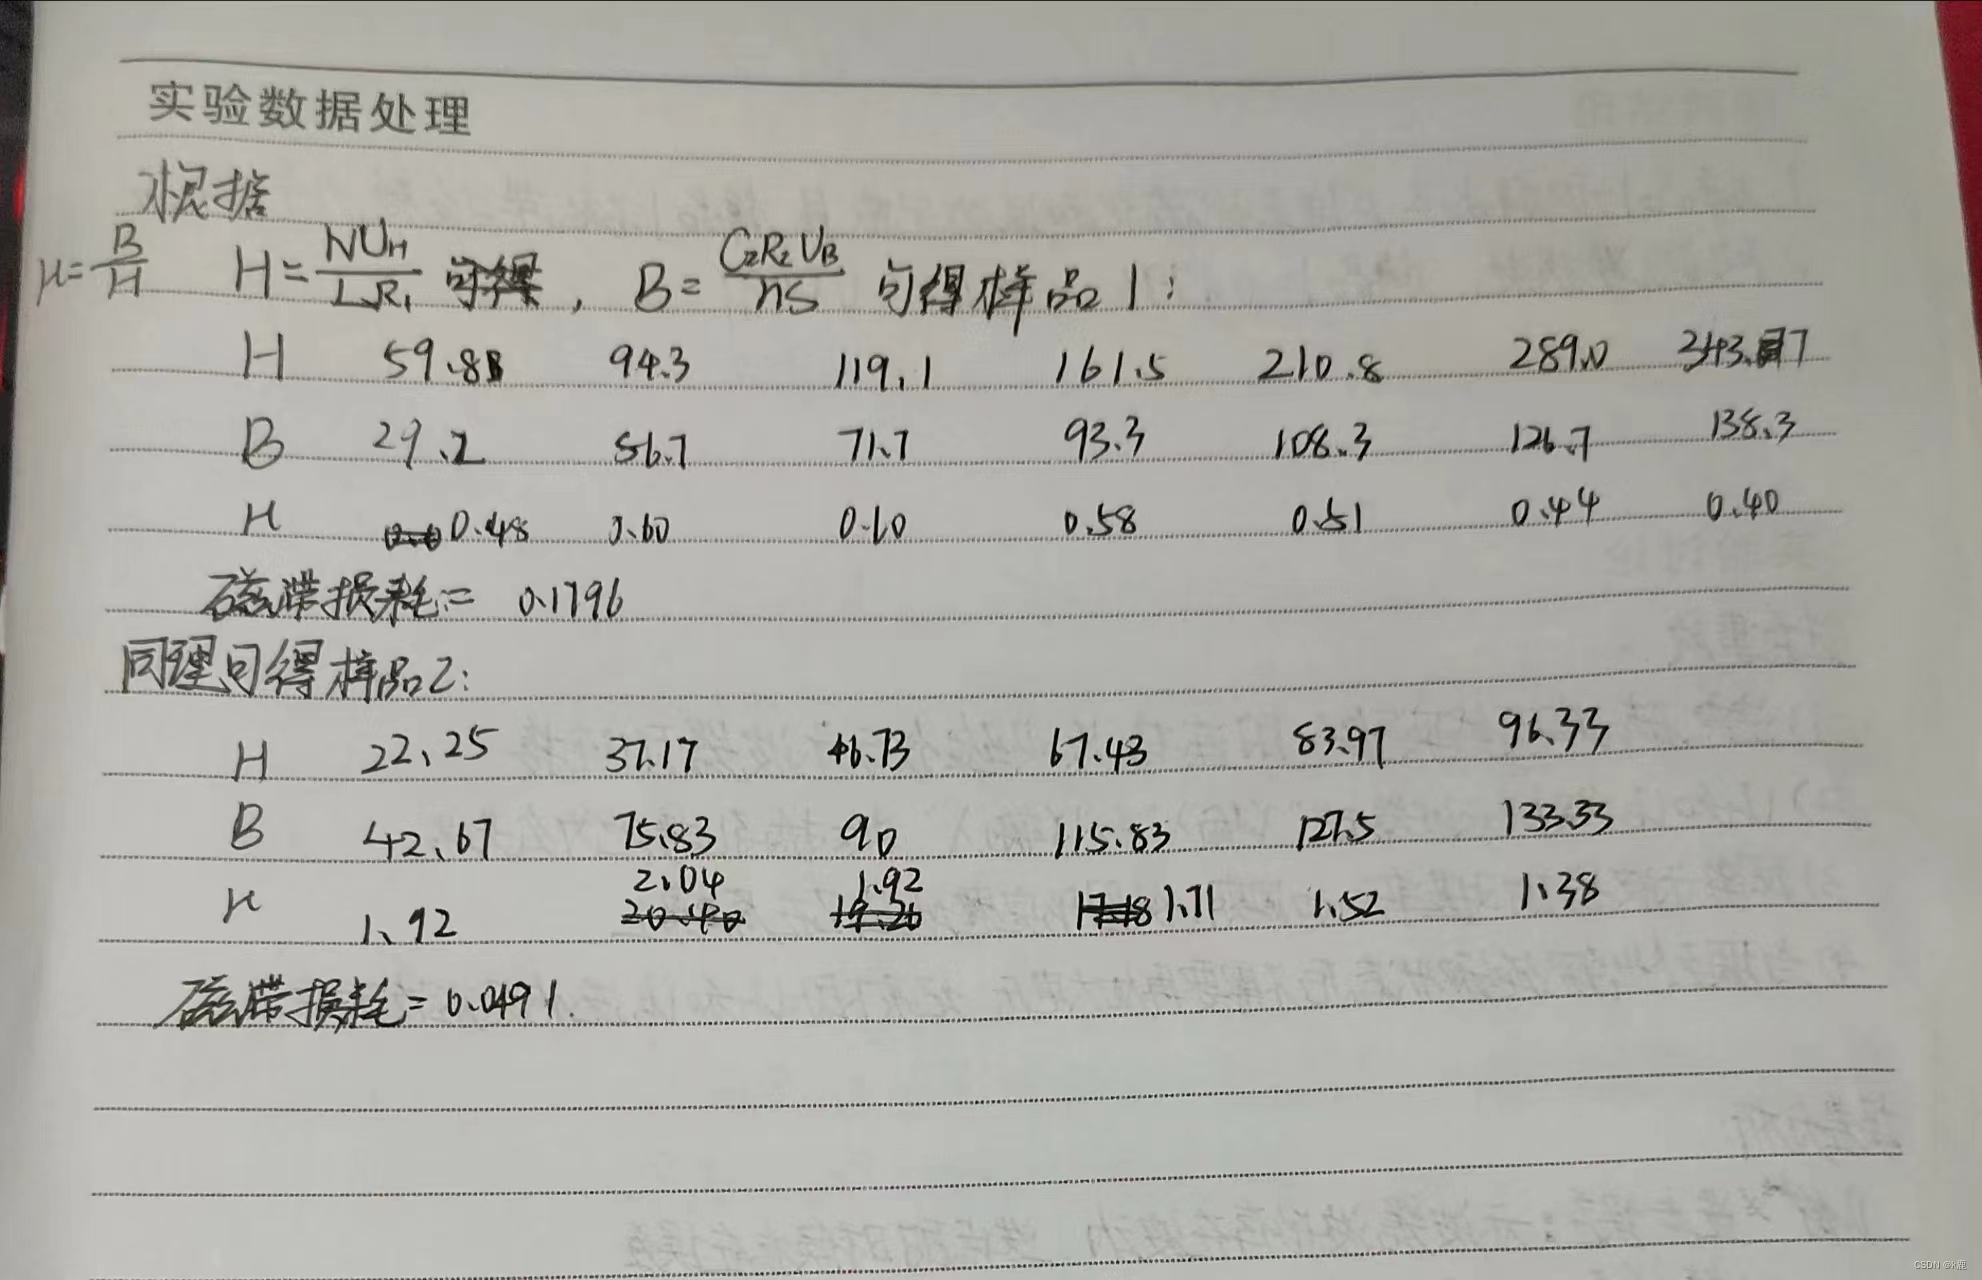 实验数据处理
根据
μ=B/H H=NUH/LR1, B=C2R2UB/nS 可得样品1:
H 59.8 94.3 119.1 161.5 210.8 289.0 343.7
B 29.2 56.7 71.7 93.3 108.3 126.7 138.3
μ 0.48 0.60 0.60 0.58 0.51 0.44 0.40
磁滞损耗= 0.1796
同理可得样品2:
H 22.25 37.17 46.73 67.43 83.97 96.33
B 42.67 75.83 90 115.83 127.5 133.33
μ 1.92 2.04 1.92 1.71 1.52 1.38
磁滞损耗=0.0491.
CSDN